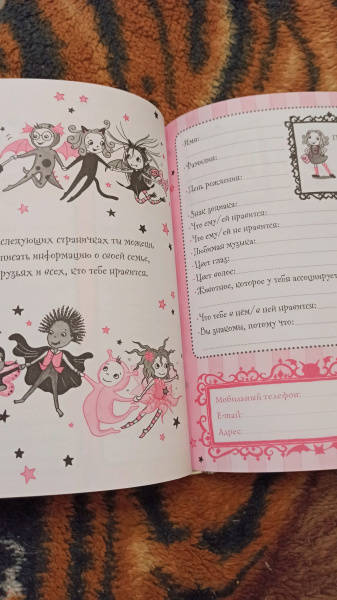 следующих страничках ты можешь
писать информацию о своей семье,
рузьях и всех, кто тебе нравится.
Имя:
Фамилия:
День рождения:
Знак зодиака:
Что ему/ей нравится:
Что ему/ей не нравится:
Любимая музыка:
Цвет глаз:
Цвет волос:
Животное, которое у тебя ассоциирует
Что тебе в нём/в ней нравится:
Вы знакомы, потому что:
Мобильный телефон:
E-mail:
Адрес: